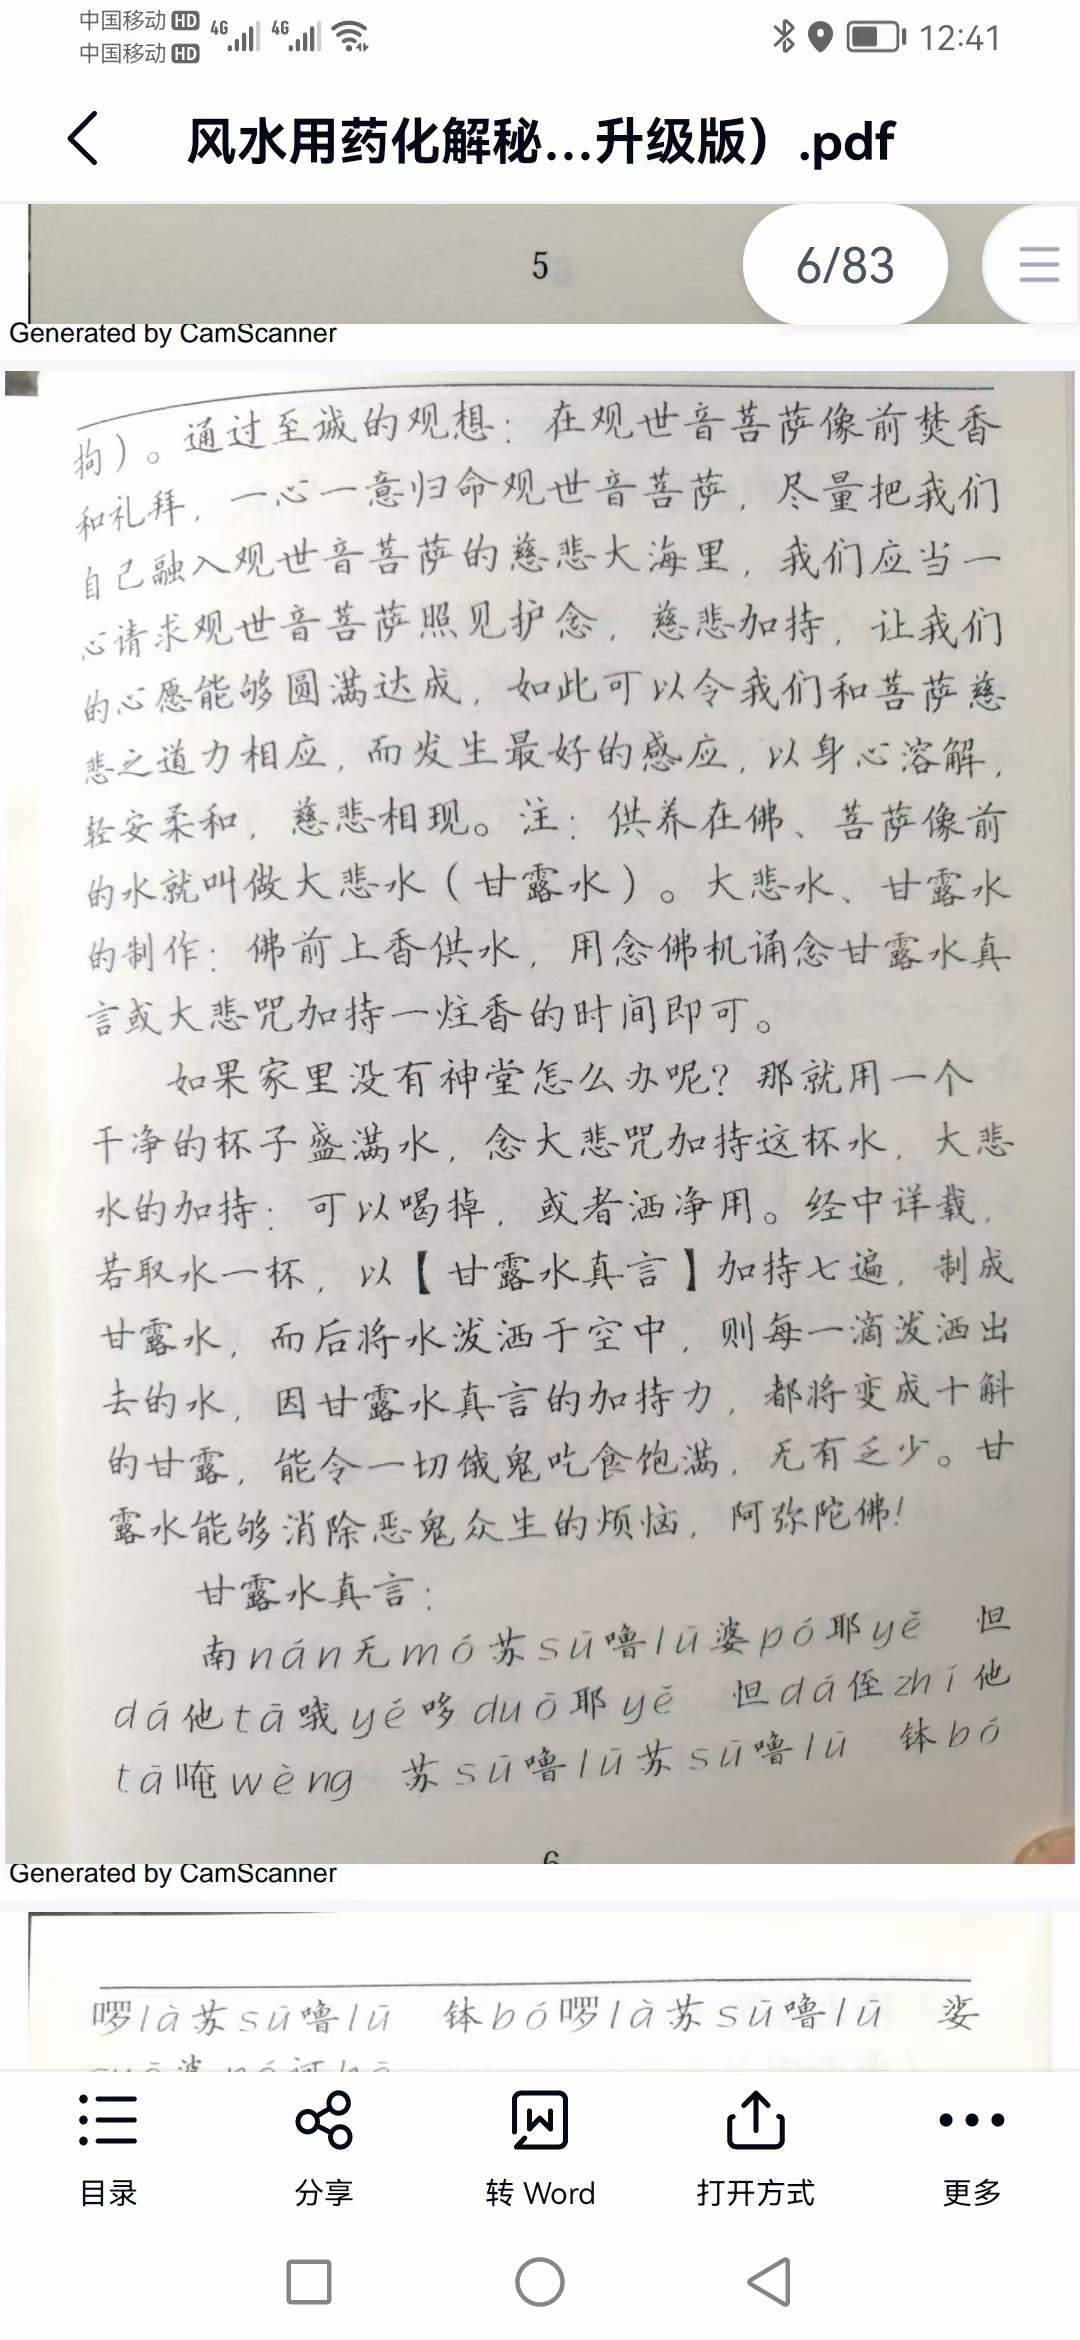 中国移动 HD 4G 4G
中国移动 HD
12:41
风水用药化解秘...升级版）.pdf
5
6/83
Generated by CamScanner
拘）。通过至诚的观想：在观世音菩萨像前焚香
和礼拜，一心一意归命观世音菩萨，尽量把我们
自己融入观世音菩萨的慈悲大海里，我们应当一
心请求观世音菩萨照见护念，慈悲加持，让我们
的心愿能够圆满达成，如此可以令我们和菩萨慈
悲之道力相应，而发生最好的感应，以身心溶解，
轻安柔和，慈悲相现。注：供养在佛、菩萨像前
的水就叫做大悲水（甘露水）。大悲水、甘露水
的制作：佛前上香供水，用念佛机诵念甘露水真
言或大悲咒加持一炷香的时间即可。
如果家里没有神堂怎么办呢？那就用一个
干净的杯子盛满水，念大悲咒加持这杯水，大悲
水的加持：可以喝掉，或者洒净用。经中详载，
若取水一杯，以【甘露水真言】加持七遍，制成
甘露水，而后将水泼洒于空中，则每一滴泼洒出
去的水，因甘露水真言的加持力，都将变成十斛
的甘露，能令一切饿鬼吃食饱满，无有乏少。甘
露水能够消除恶鬼众生的烦恼，阿弥陀佛！
甘露水真言：
南nán无mó苏sū噜lū婆pó耶yē 怛
dá他tā哦yé哆duō耶yē 怛dá侄zhí他
tā唵wèng 苏sū噜lū苏sū噜lū 钵bó
6
Generated by CamScanner
啰là苏sū噜lū 钵bó啰là苏sū噜lū 娑
目录
分享
转 Word
打开方式
更多